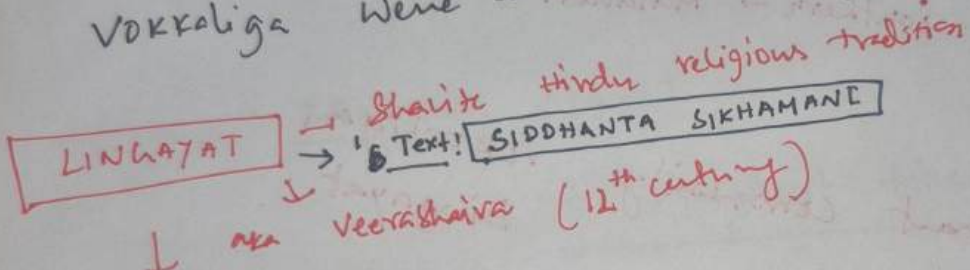 Vokkaliga were
LINGAYAT → Shaivite Hindu religious tradition
→ 's Text: SIDDHANTA SIKHAMANI
↓ aka Veerashaiva (12th century)